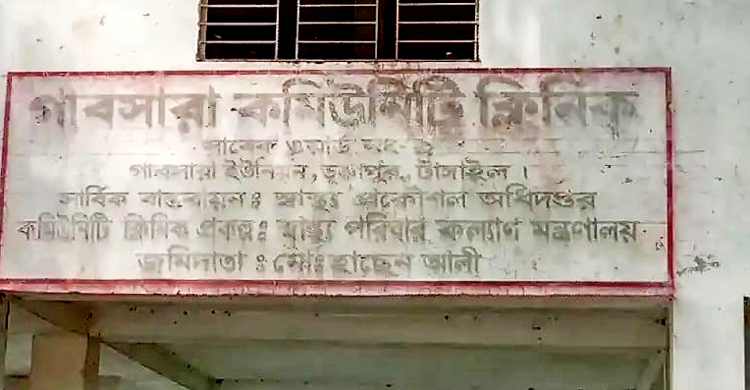 গাবসারা কমিউনিটি ক্লিনিক
সাবেক ওয়ার্ড নং-
গাবসারা ইউনিয়ন, ভূঞাপুর, টাঙ্গাইল ।
সার্বিক বাস্তবায়ন ঃ স্বাস্থ্য প্রকৌশল অধিদপ্তর
কমিউনিটি ক্লিনিক প্রকল্প ঃ স্বাস্থ্য পরিবার কল্যাণ মন্ত্রণালয়
জমিদাতা ঃ মোঃ হাছেন আলী